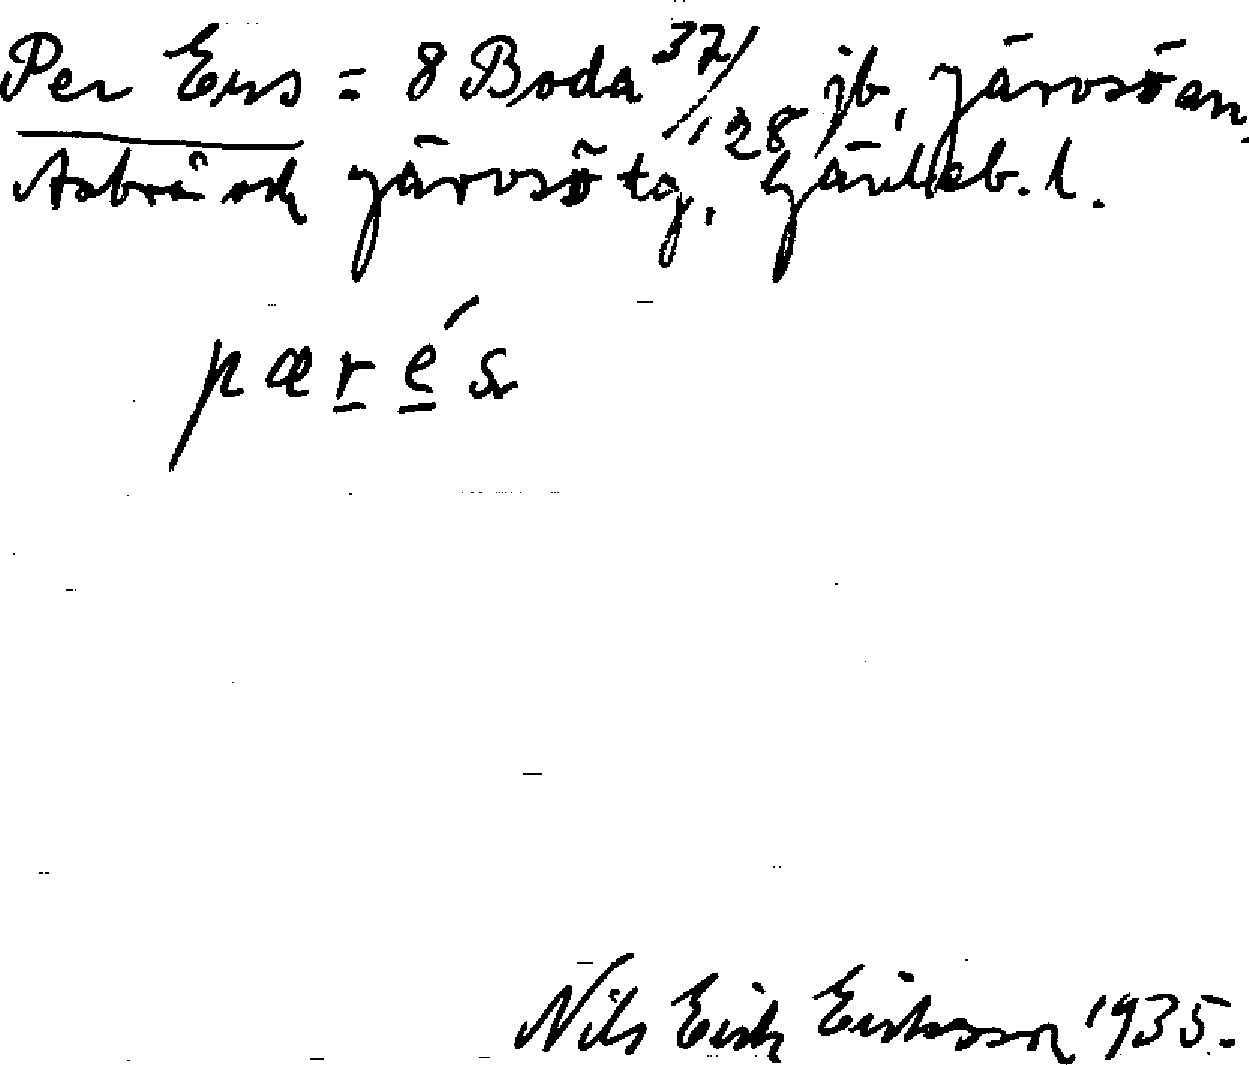 Per Ers = 8 Boda 37/128 jb, Järvsö an.
Asbrå sock Järvsö tg, Gävleb. l.
pærés
Nils Erik Eriksson 1935.